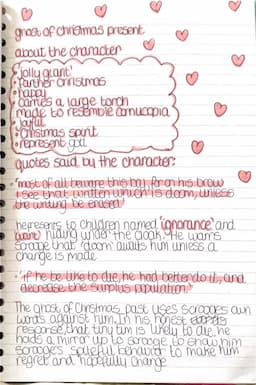 ghost of christmas present
about the character
• 'jolly giant'
• farther christmas
• happy
• carries a large torch
made to resemble cornucopia
• joyful
• christmas spirit
• represent god
quotes said by the character:
• 'most of all beware this boy for on his brow
I see that written which is doom, unless
the writing be erased'
he presents to children named 'ignorance' and
'want' hiding under the cloak. He warns
scrooge that 'doom' awaits him unless a
change is made
• 'if he be like to die, he had better do it, and
decrease the surplus population.'
The ghost of Christmas past uses scrooges own
words against him. In his honest
response, that tiny tim is likely to die, he
holds a mirror up to scrooge to show him
scrooge's spiteful behavior to make him
regret and hopefully change